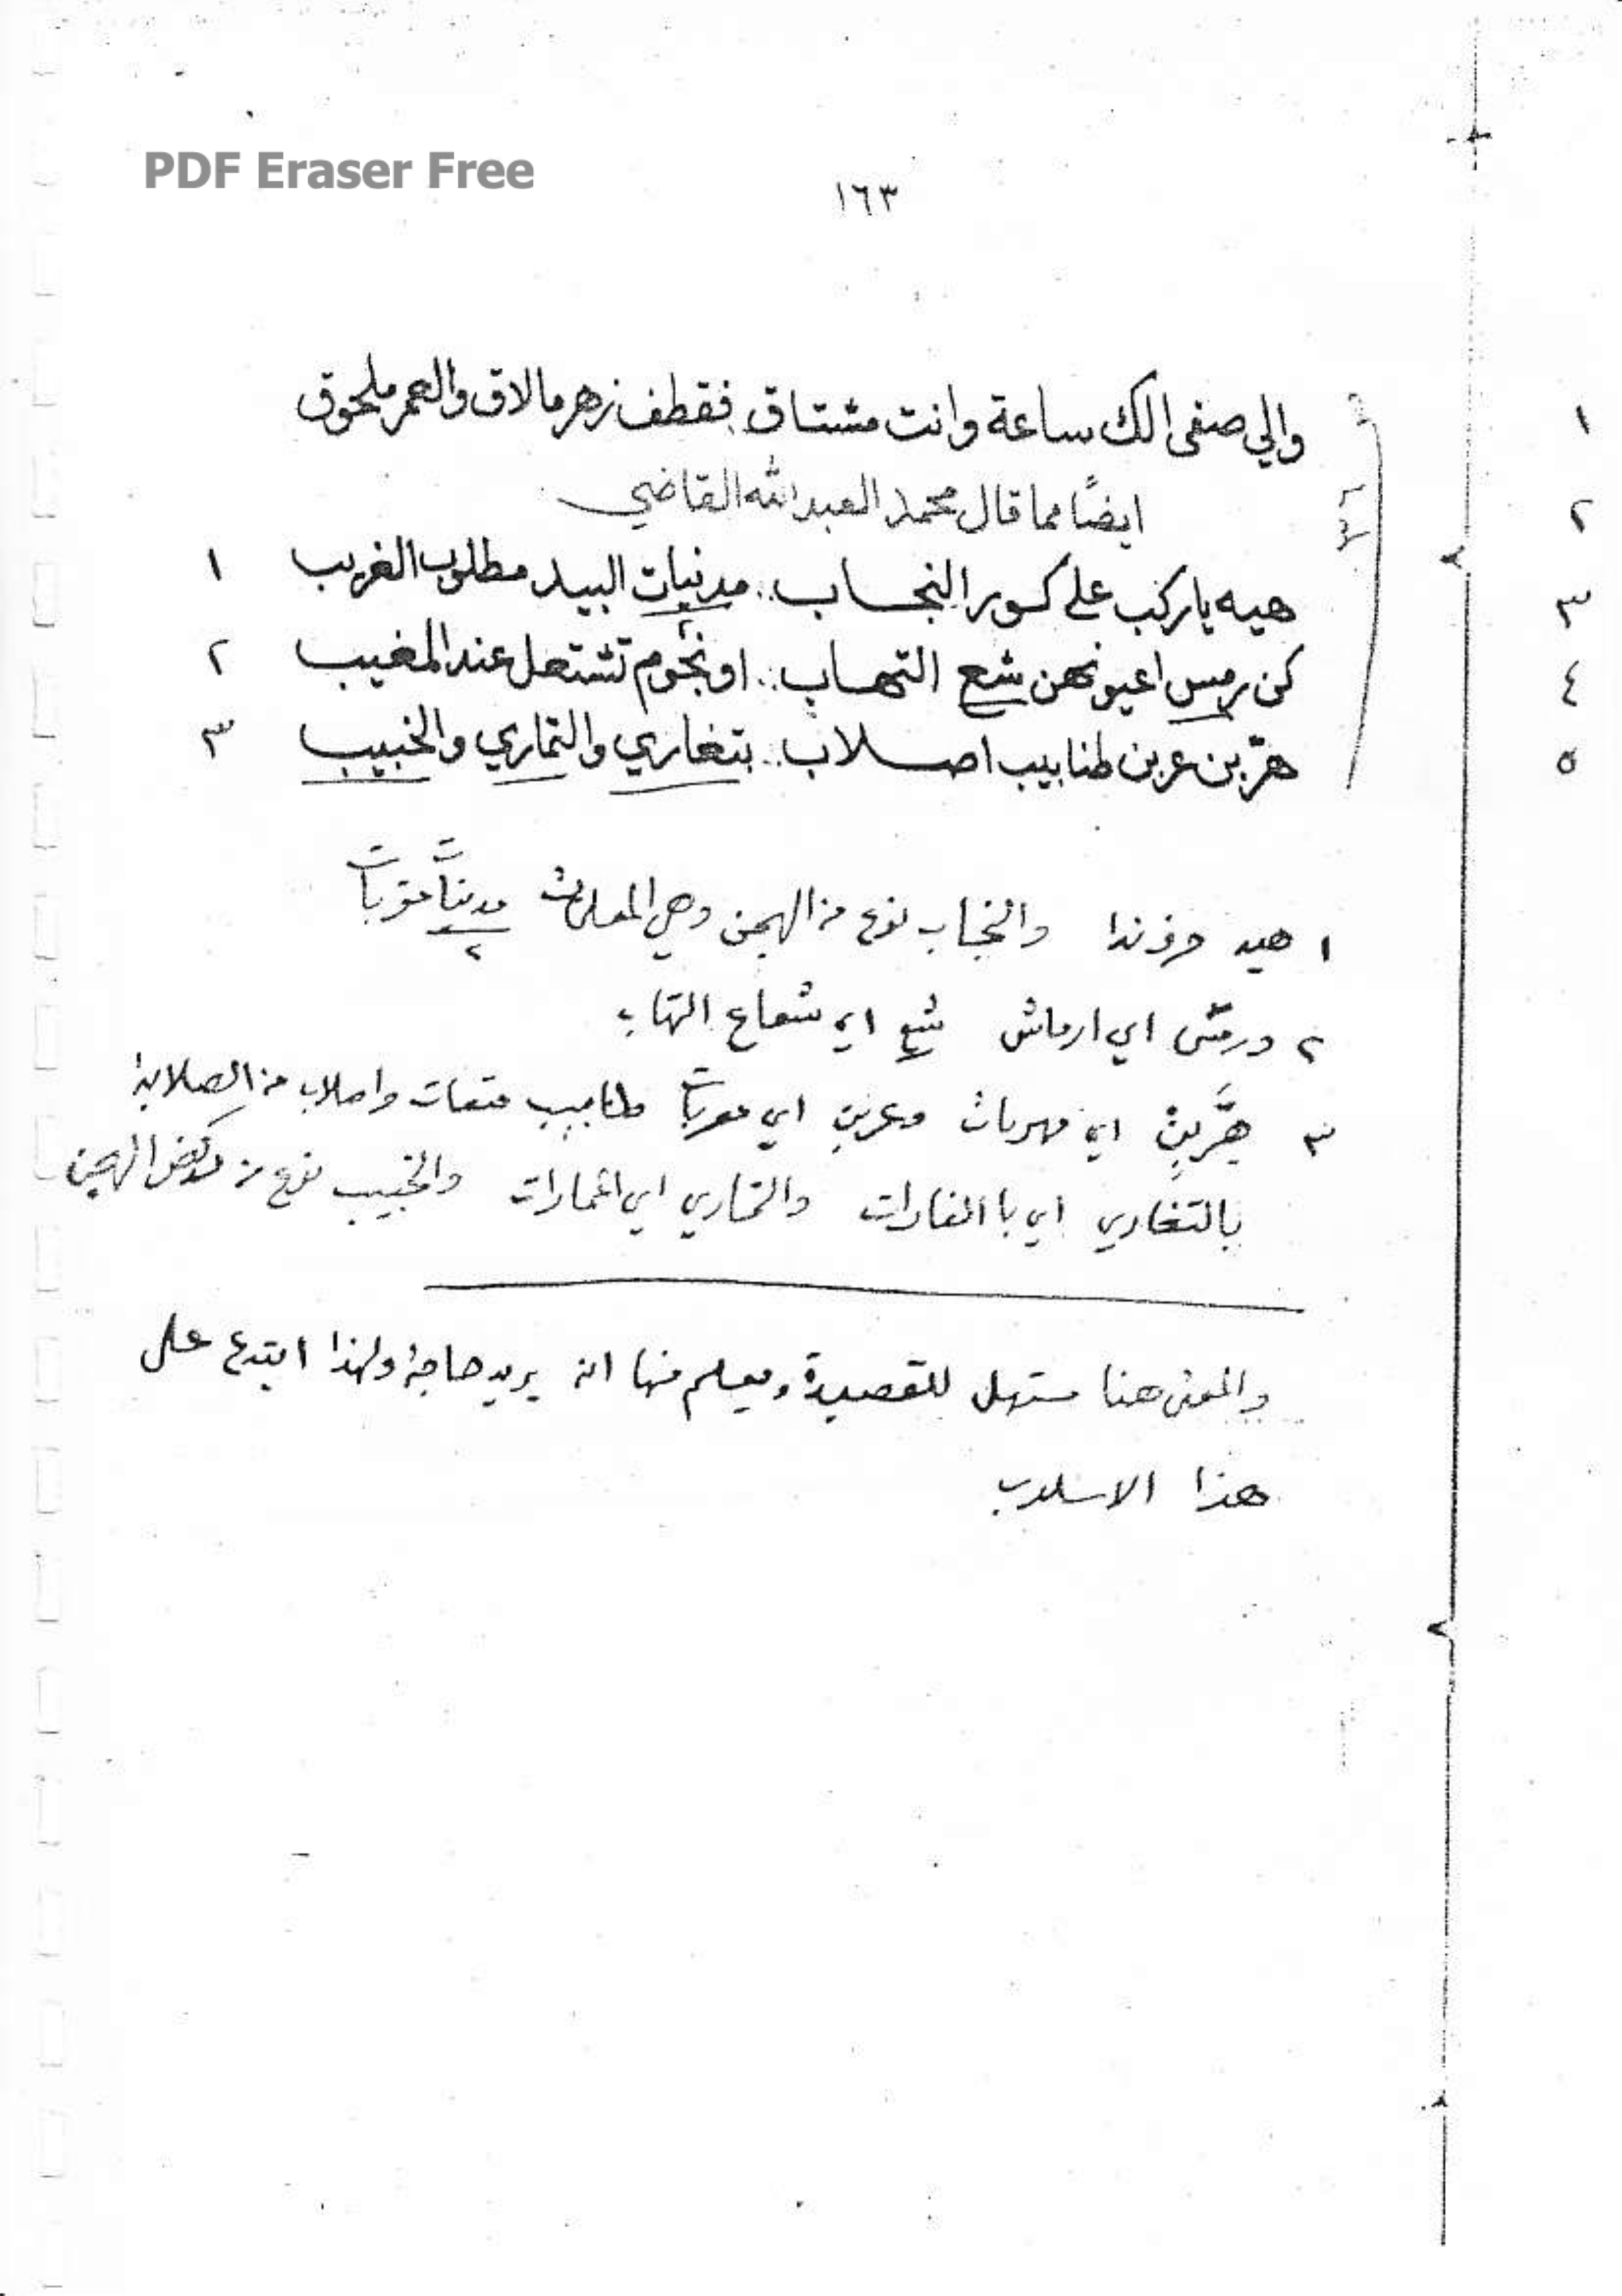 PDF Eraser Free
١٦٣
والي صفى الك ساعة وانت مشتاق .. فقطف زهر مالاق والعمر ملحوق ١
ايضًا مما قال محمد العبدالله القاضي ٢
هيه ياركب على كور النجاب .. مدنيات البيد مطلوب الغريب ١ ٣
كن رمس اعيونهن شع التهاب .. او نجوم تشتعل عند المغيب ٢ ٤
هرّبن عربن طنابيب اصلاب .. بتغاري والتماري والخبيب ٣ ٥
١ هيه حرف ندا والنجاب نوع من الهجن وهي
٢ ورمش اي ارماش شع اي شعاع التهاب
٣ هَرِّبن اي مهربات وعربن اي واصلاب من الصلابة
بالتغاري اي با الغارات والتماري اي والخبيب نوع من ركض الهجن
والمعنى هنا مستهل للقصيدة ويعلم منها انه يريد حاجة ولهذا ابتدع على
هذا الاسلوب